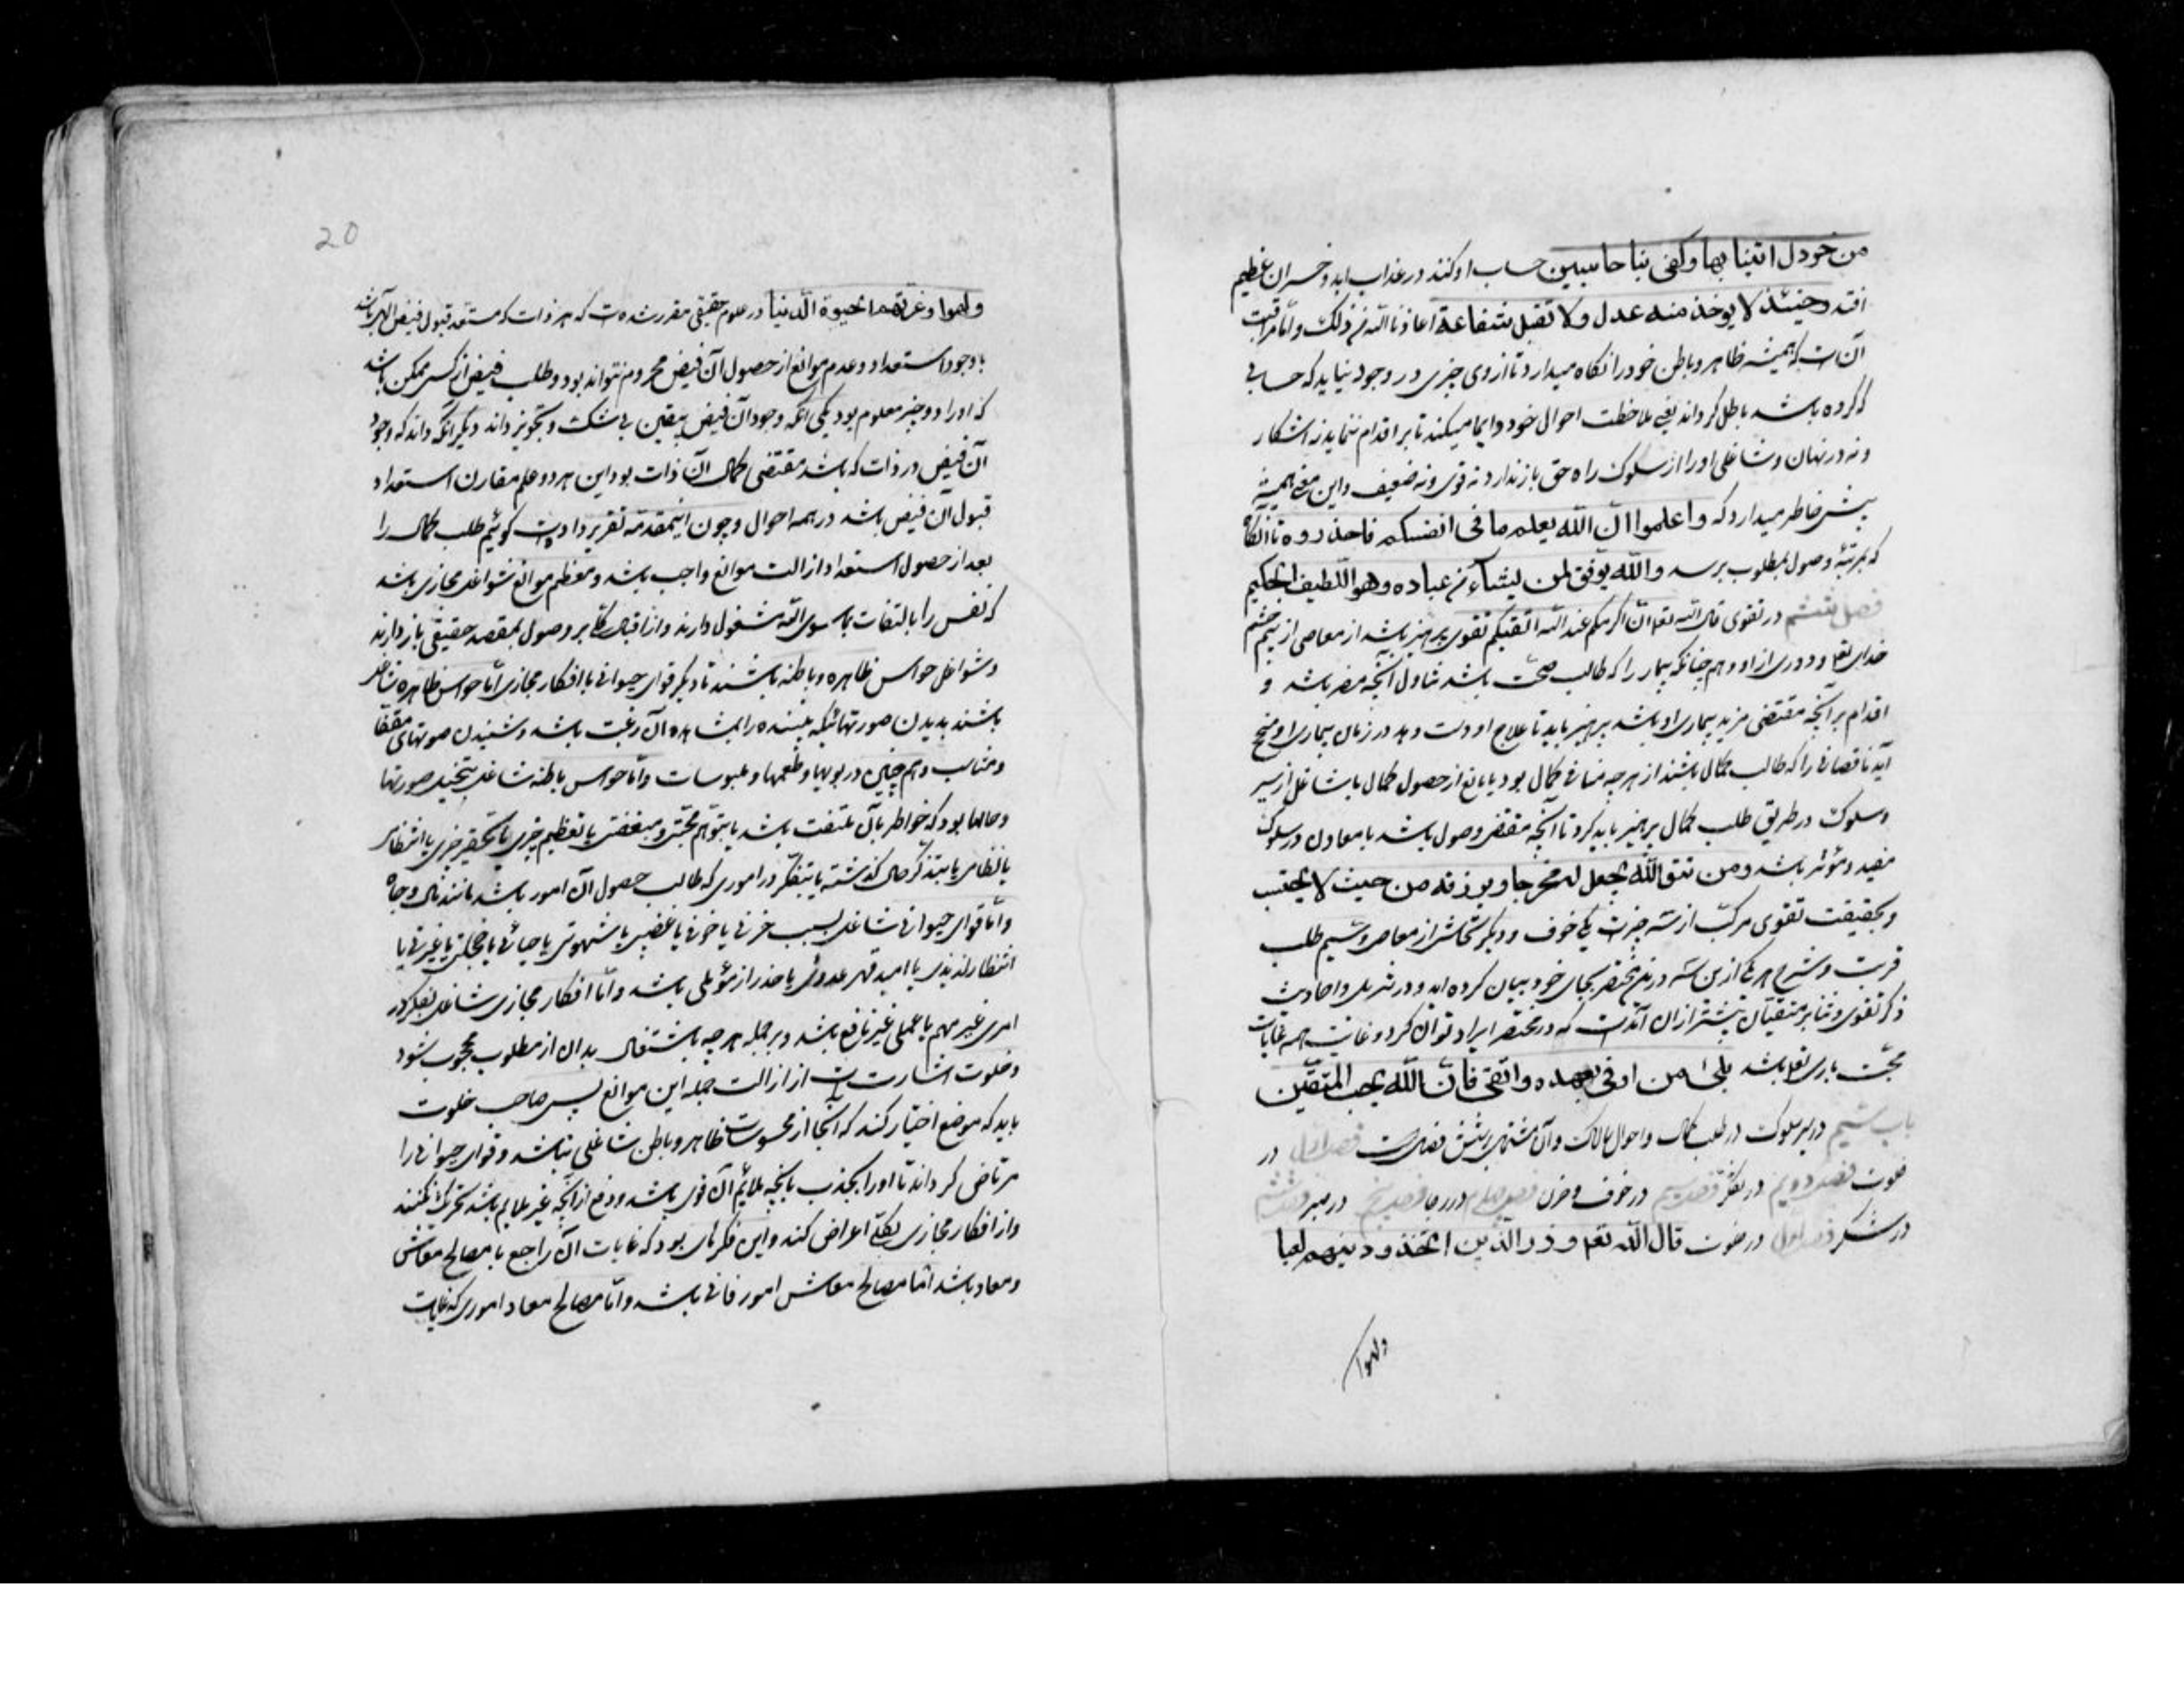 من خردل اتینا بها وکفی بنا حاسبین حساب او کنند در عذاب ابد و خسران عظیم
افتد و حینئذ لا یوخذ منه عدل ولا تقبل شفاعة اعاذنا الله من ذلک و اما مراقبت
آن است که همیشه ظاهر و باطن خود را نگاه میدارد تا از وی چیزی در وجود نیاید که حسابی
که کرده باشد باطل گرداند یعنی ملاحظت احوال خود دایما میکند تا بر اقدام ننماید نه اشکار
و نه در نهان و شاغلی او را از سلوک راه حق باز ندارد نه قوی و نه ضعیف و این معنی همیشه
پیش خاطر میدارد که واعلموا ان الله یعلم ما فی انفسکم فاحذروه تا انگاه
که بمرتبهٔ وصول بمطلوب برسد والله یوفق لمن یشاء من عباده وهو اللطیف الحکیم
فصل ششم در تقوی قال الله تعه ان اکرمکم عند الله اتقیکم تقوی پرهیز باشد از معاصی از بیم خشم
خدای تعه و دوری از او و هم چنانکه بیمار را که طالب صحت باشد تناول آنچه مضر باشد و
اقدام بر آنچه مقتضی مزید بیماری او باشد پرهیز باید تا علاج او دست دهد در زمان بیماری او منجح
آید ناقصانی را که طالب کمال باشند از هر چه منافی کمال بود یا مانع از حصول کمال یا شاغل از سیر
و سلوک در طریق طلب کمال پرهیز باید کرد تا آنچه مقتضی وصول باشد یا معاون در سلوک
مفید و مؤثر باشد ومن یتق الله یجعل له مخرجا ویرزقه من حیث لا یحتسب
و بحقیقت تقوی مرکب از سه چیزست یکی خوف و دیگر تحاشی از معاصی و سیم طلب
قربت و شرح هر یکی از این سه درین مختصر بجای خود بیان کرده اید و در تنزیل و احادیث
ذکر تقوی و ثنا بر متقیان بیشتر از ان آمدست که در مختصر ایراد توان کرد و غایت همه غایات
محبت باری تعه باشد بلی من اوفی بعهده واتقی فان الله یحب المتقین
باب سیم در سیر سلوک در طلب کمال و احوال سالک و آن مشتمل بر شش فصلست فصل اول در
خلوت فصل دویم در تفکر فصل سیم در خوف و حزن فصل چهارم در رجا فصل پنجم در صبر فصل ششم
در شکر فصل اول در خلوت قال الله تعه وذر الذین اتخذوا دینهم لعبا
ولهوا
20
ولهوا وغرتهم الحیوة الدنیا در علوم حقیقی مقرر شده ست که هر ذات که مستعد قبول فیض الهی باشد
با وجود استعداد و عدم موانع از حصول آن فیض محروم نتواند بود و طلب فیض از کسی ممکن باشد
که او را دو چیز معلوم بود یکی انکه وجود آن فیض بیقین بی شک و تجویز داند و دیگر آنکه داند که وجود
آن فیض در ذات که باشد مقتضی کمال آن ذات بود و این هر دو علم مقارن استعداد
قبول آن فیض باشد در همه احوال و چون اینمقدمه تقریر داده ست گوئیم طلب کمال را
بعد از حصول استعداد ازالت موانع واجب باشد و معظم موانع شواغل مجازی باشد
که نفس را بالتفات بما سوی الله مشغول دارند و از اقبال کلی بر وصول بمقصد حقیقی باز دارند
و شواغل حواس ظاهره و باطنه باشند تا دیگر قوای حیوانی یا افکار مجازی اما حواس ظاهره شاغل
باشند بدیدن صورتهائیکه بیننده را بمشاهده آن رغبت باشد و شنیدن صوتهای مقفا
و مناسب و هم چنین در بویها و طعمها و ملبوسات و اما حواس باطنه شاغل بتخیل صورتها
و حالها بود که خواطر بآن ملتفت باشد یا بتوهم محبتی و مبغضتی یا تعظیم چیزی یا تحقیر چیزی یا انتظام
یا نظامی یا بتذکر حال گذشته یا بتفکر در اموری که طالب حصول آن امور باشد مانند مال و جاه
و اما قوای حیوانی شاغل بسبب حزنی یا خوفی یا غضبی یا شهوتی یا حیائی یا خجلتی یا غیرتی یا
انتظار لذیذی یا امید قهر عدوی یا حذر از مؤلمی باشد و اما افکار مجازی شاغل بتفکر در
امری غیر مهم یا عملی غیر نافع باشد و بر جمله هر چه باشتغال بدان از مطلوب محجوب شود
و خلوت اشارت ست از ازالت جمله این موانع پس صاحب خلوت
باید که موضع اختیار کند که آنجا از محسوسات ظاهر و باطن شاغلی نباشد و قوای حیوانی را
مرتاض گرداند تا او را بجذب بآنچه ملائم آن قوی باشد و دفع از آنچه غیر ملایم باشد تحریک نکنند
و از افکار مجازی بکلی اعراض کند و این فکر های بود که غایات آن راجع با مصالح معاش
و معاد باشد اما مصالح معاش امور فانی باشد و اما مصالح معاد اموری که غایات